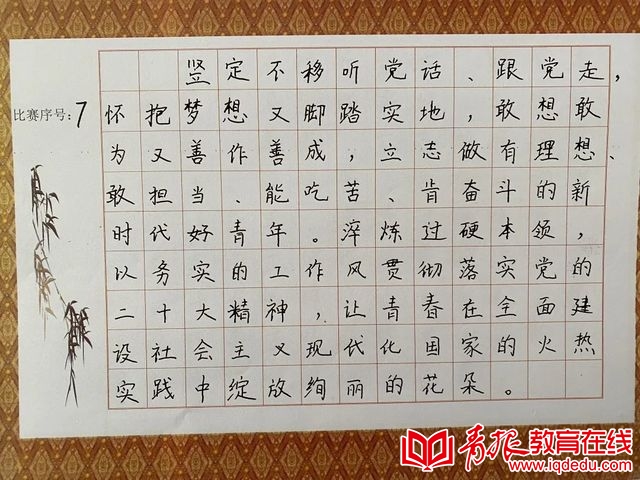 比赛序号:7
坚定不移听党话、跟党走,
怀抱梦想又脚踏实地,敢想敢
为又善作善成,立志做有理想、
敢担当、能吃苦、肯奋斗的新
时代好青年。淬炼过硬本领,
以务实的工作风贯彻落实党的
二十大精神,让青春在全面建
设社会主义现代化国家的火热
实践中绽放绚丽的花朵。
青报教育在线
www.iqdedu.com